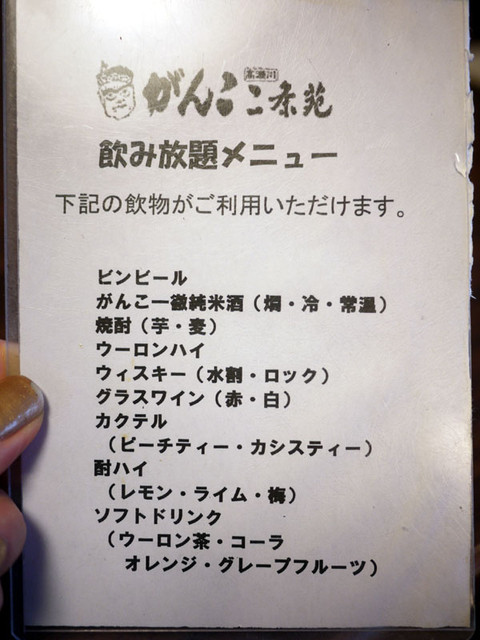 高瀬川
がんこ二条苑
飲み放題メニュー
下記の飲物がご利用いただけます。
ビンビール
がんこ一徹純米酒（燗・冷・常温）
焼酎（芋・麦）
ウーロンハイ
ウィスキー（水割・ロック）
グラスワイン（赤・白）
カクテル
（ピーチティー・カシスティー）
酎ハイ
（レモン・ライム・梅）
ソフトドリンク
（ウーロン茶・コーラ
オレンジ・グレープフルーツ）